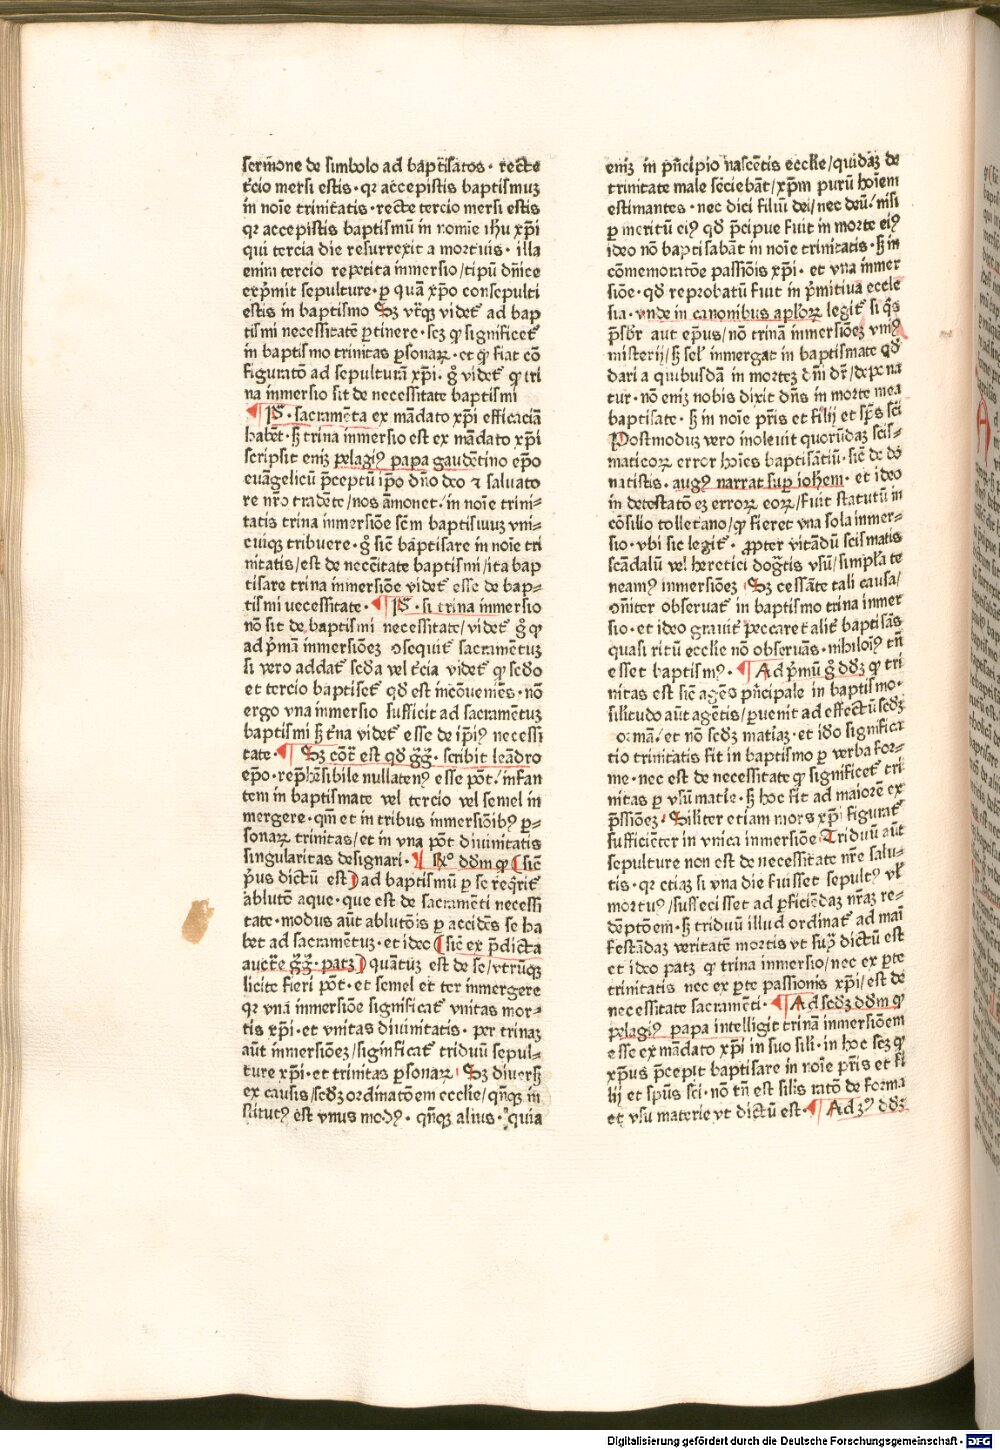 sermōne de simbolo ad bapt̄isatos · recte
t̄cio mersi estis · qꝛ accepistis baptismuꝫ
in noīe trinit̄atis · recte tercio mersi estis
qꝛ accepistis baptismū in nomīe ihu xp̄i
qui tercia die resurrexit a mortuis · illa
enim tercio repetita inmersio/tipū dn̄ice
exp̄mit sepulture · ꝑ quā xp̄o consepulti
estis in baptismo Sꝫ vt̄qꝫ videt̄ ad bap
tismi necessitatē ꝑtinere · scꝫ ꝙ significet̄
in baptismo trinitas ꝑsonaꝝ · et ꝙ fiat cō
figuratō ad sepulturā xp̄i · gͦ videt̄ ꝙ tri
na inmersio sit de necessitate baptismi
¶ Pͣ · sacramēta ex mādato xp̄i efficaciā
habēt · sꝫ trina inmersio est ex mādato xp̄i
scripsit eniꝫ pelagiꝰ papa gaudētino ep̄o
euāgelicū p̄ceptū ip̄o dn̄o deo ⁊ saluato
re nr̄o tradēte/nos āmonet · in noīe trini⸗
tatis trina inmersiōe scm̄ baptismuꝫ vni⸗
cuiqꝫ tribuere · gͦ sic̄ bāptisare in noīe tri
nitatis/est de necc̄itate baptismi/ita bap
tisare trina inmersiōe videt̄ esse de bap⸗
tismi uecessitate · ¶ Pͣ · si trina inmersio
nō sit de baptismi necessitate/videt̄ gͦ ꝙ
ad p̄mā inmersiōeꝫ ↄsequit̄ sacramētuꝫ
si vero addat̄ scd̄a vel t̄cia videt̄ ꝙ scd̄o
et tercio baptiset̄ qd̄ est incōueniēs · nō
ergo vna inmersio sufficit ad sacramētuꝫ
baptismi sꝫ t̄na videt̄ esse de ip̄iꝰ necessi
tate · ¶ Sꝫ cōt̄ est qd̄ gḡ · scribit leādro
ep̄o · rep̄hēsibile nullatenꝰ esse pōt/infan
tem in baptismate vel tercio vel semel in
mergere · qm̄ et in tribus inmersiōibꝰ ꝑ⸗
sonaꝝ trinitas/et in vna pōt diuinitatis
singularitas designari · ¶ Rͦ dd̄m ꝙ (sic̄
p̄us dictū est) ad baptismū ꝑ se req̄rit̄
ablutō aque · que est de sacramēti necessi
tate · modus aūt ablutōis ꝑ accidēs se ha
bet ad sacramētuꝫ · et ideo (sic̄ ex p̄dicta
auct̄e gḡ · patꝫ) quātuꝫ est de se/vtrūqꝫ
licite fieri pōt · et semel et ter inmergere
qꝛ vnā inmersiōe significat̄ vnitas mor⸗
tis xp̄i · et vnitas diuinitatis · per trinaꝫ
aūt inmersiōeꝫ/significat̄ triduū sepul⸗
ture xp̄i · et trinitas ꝑsonaꝝ · Sꝫ diuersꝫ
ex causis/scd̄ꝫ ordinatōem ecclīe/qn̄qꝫ in
stitutꝰ est vnus modꝰ · qn̄qꝫ alius · quia
eniꝫ in pn̄cipio nascētis ecclīe/quidaꝫ de
trinitate male sēciebāt/xp̄m purū hoīem
estimantes · nec dici filiū dei/nec deū/nisi
ꝑ meritū eiꝰ qd̄ p̄cipue fuit in morte eiꝰ
ideo nō baptisabāt in noīe trinitatis · sꝫ in
cōmemoratōe passiōis xp̄i · et vna inmer
siōe · qd̄ reprobatū fuit in p̄mitiua eccle
sia · vnde in canonibus apl̄oꝝ legit̄ si q̄s
p̄sbr̄ aut ep̄us/nō trinā inmersiōeꝫ vniꝰ
misterij/sꝫ sel̄ inmergat in baptismate qd̄
dari a quibusdā in morteꝫ dn̄i dr̄/depona
tur · nō eniꝫ nobis dixit dn̄s in morte mea
baptisate · sꝫ in noīe pr̄is et filij et sp̄s sc̄i
Postmoduꝫ vero inoleuit quorūdaꝫ scis⸗
maticoꝝ error hoīes baptisātiū · sic̄ de dō
natistis · augꝰ narrat suꝑ iohem̄ · et ideo
in detestatō eꝫ erroꝝ eoꝝ/fuit statutū in
cōsilio tolletano/ꝙ fieret vna sola inmer⸗
sio · vbi sic legit̄ · ꝓpter vitādū scismatis
scādalū vel heretici dogt̄is vsū/simpla te
neamꝰ inmersiōeꝫ · Sꝫ cessāte tali causa/
oīniter obseruat̄ in baptismo trina inmer
sio · et ideo grauit̄ peccaret alit̄ baptisās
quasi ritū ecclīe nō obseruās · nihiloīꝰ tn̄
esset baptismꝰ · ¶ Ad p̄mū gͦ dd̄ꝫ ꝙ tri
nitas est sic̄ agēs pn̄cipale in baptismo ·
silitudo aūt agētis/ꝑuenit ad effectū scd̄ꝫ
formā/et nō scd̄ꝫ matiaꝫ · et id̄o significa
tio trinitatis fit in baptismo ꝑ verba for⸗
me · nec est de necessitate ꝙ significet̄ tri
nitas ꝑ vsū matīe · sꝫ hoc fit ad maiorē ex
p̄ssiōeꝫ · Siliter etiam mors xp̄i figurat̄
sufficiēter in vnica inmersiōe Triduū aūt
sepulture non est de necessitate nr̄e salu⸗
tis · qꝛ etiaꝫ si vna die fuisset sepultꝰ vl̄
mortuꝰ/suffecisset ad ꝑficiēdaꝫ nr̄aꝫ re⸗
dēptōem · sꝫ triduū illud ordinat̄ ad mai
festādaꝫ veritatē mortis vt supͣ dictū est
et ideo patꝫ ꝙ trina inmersio/nec ex ꝑte
trinitatis nec ex ꝑte passionis xp̄i/est de
necessitate sacramēti · ¶ Ad scd̄ꝫ dd̄m ꝙ
pelagiꝰ papa intelligit trinā inmersiōem
esse ex mādato xp̄i in suo sili · in hoc scꝫ ꝙ
xp̄us p̄cepit baptisare in noīe pr̄is et fi
lij et sp̄us sc̄i · nō tn̄ est silis ratō de forma
et vsu materie vt dictū est · ¶ Ad 3ꝰ dd̄ꝫ
Digitalisierung gefördert durch die Deutsche Forschungsgemeinschaft · DFG